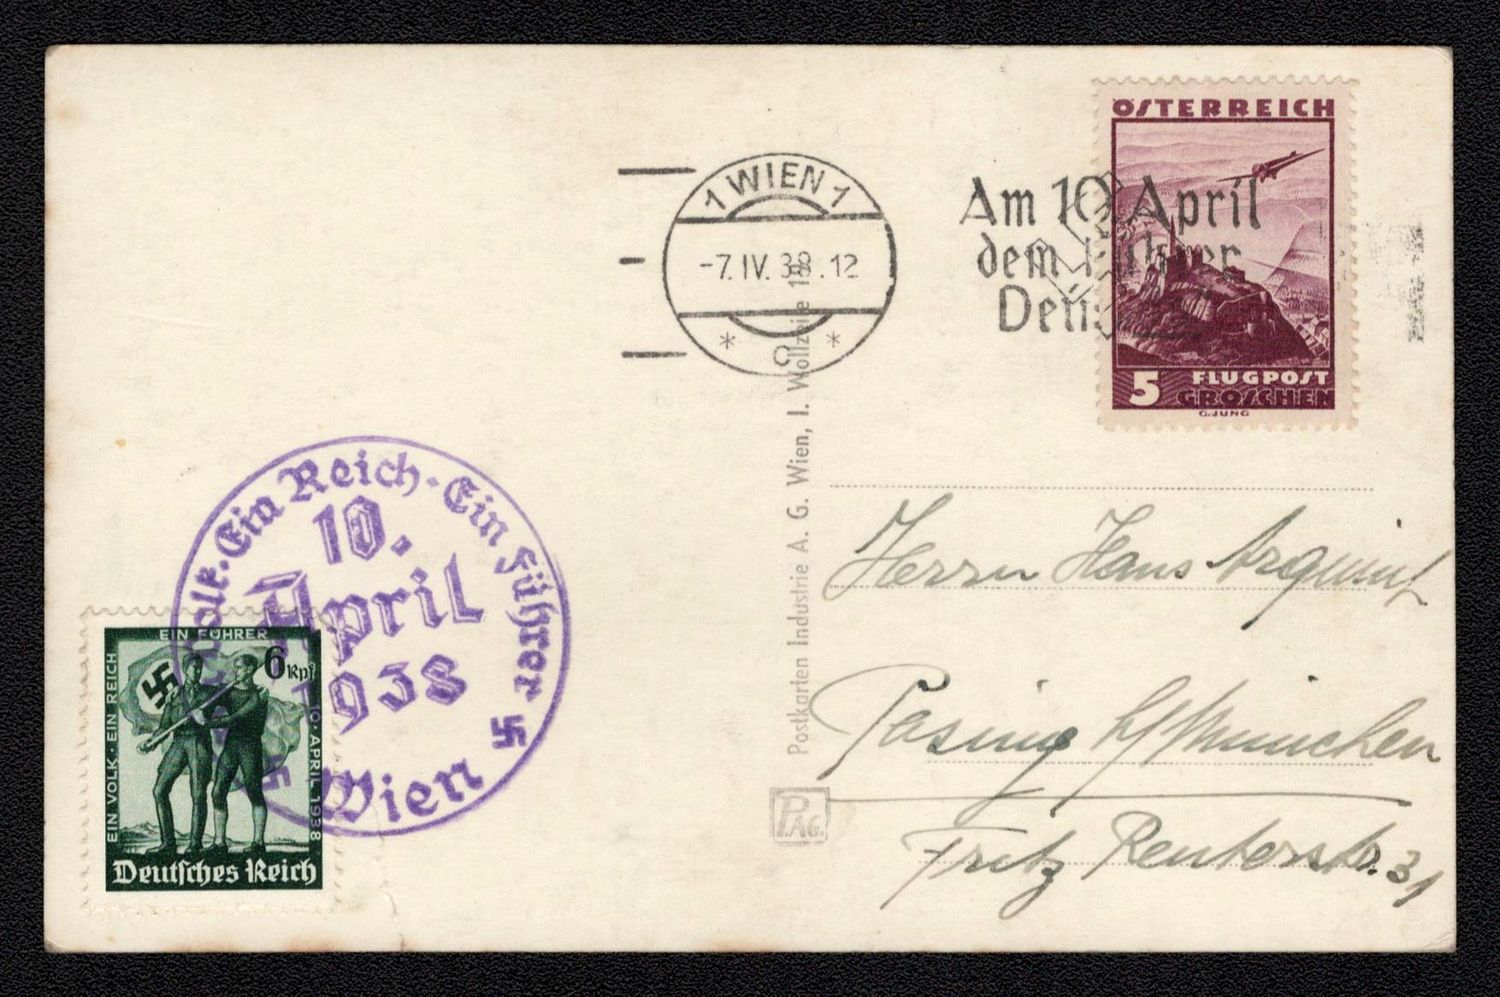 1 WIEN 1
-7. IV. 38 . 12
* Ω *
Am 10 April
dem Führer
Dein
ÖSTERREICH
5 FLUGPOST
GROSCHEN
G. JUNG
Postkarten Industrie A. G. Wien, I. Wollzeile
PAG.
Herrn Hans
Pasing b/München
Fritz Reuterstr. 31
Volk · Ein Reich · Ein Führer
10.
April
1938
Wien
EIN FÜHRER
EIN VOLK · EIN REICH
10 · APRIL 1938
6 Rpf
Deutsches Reich